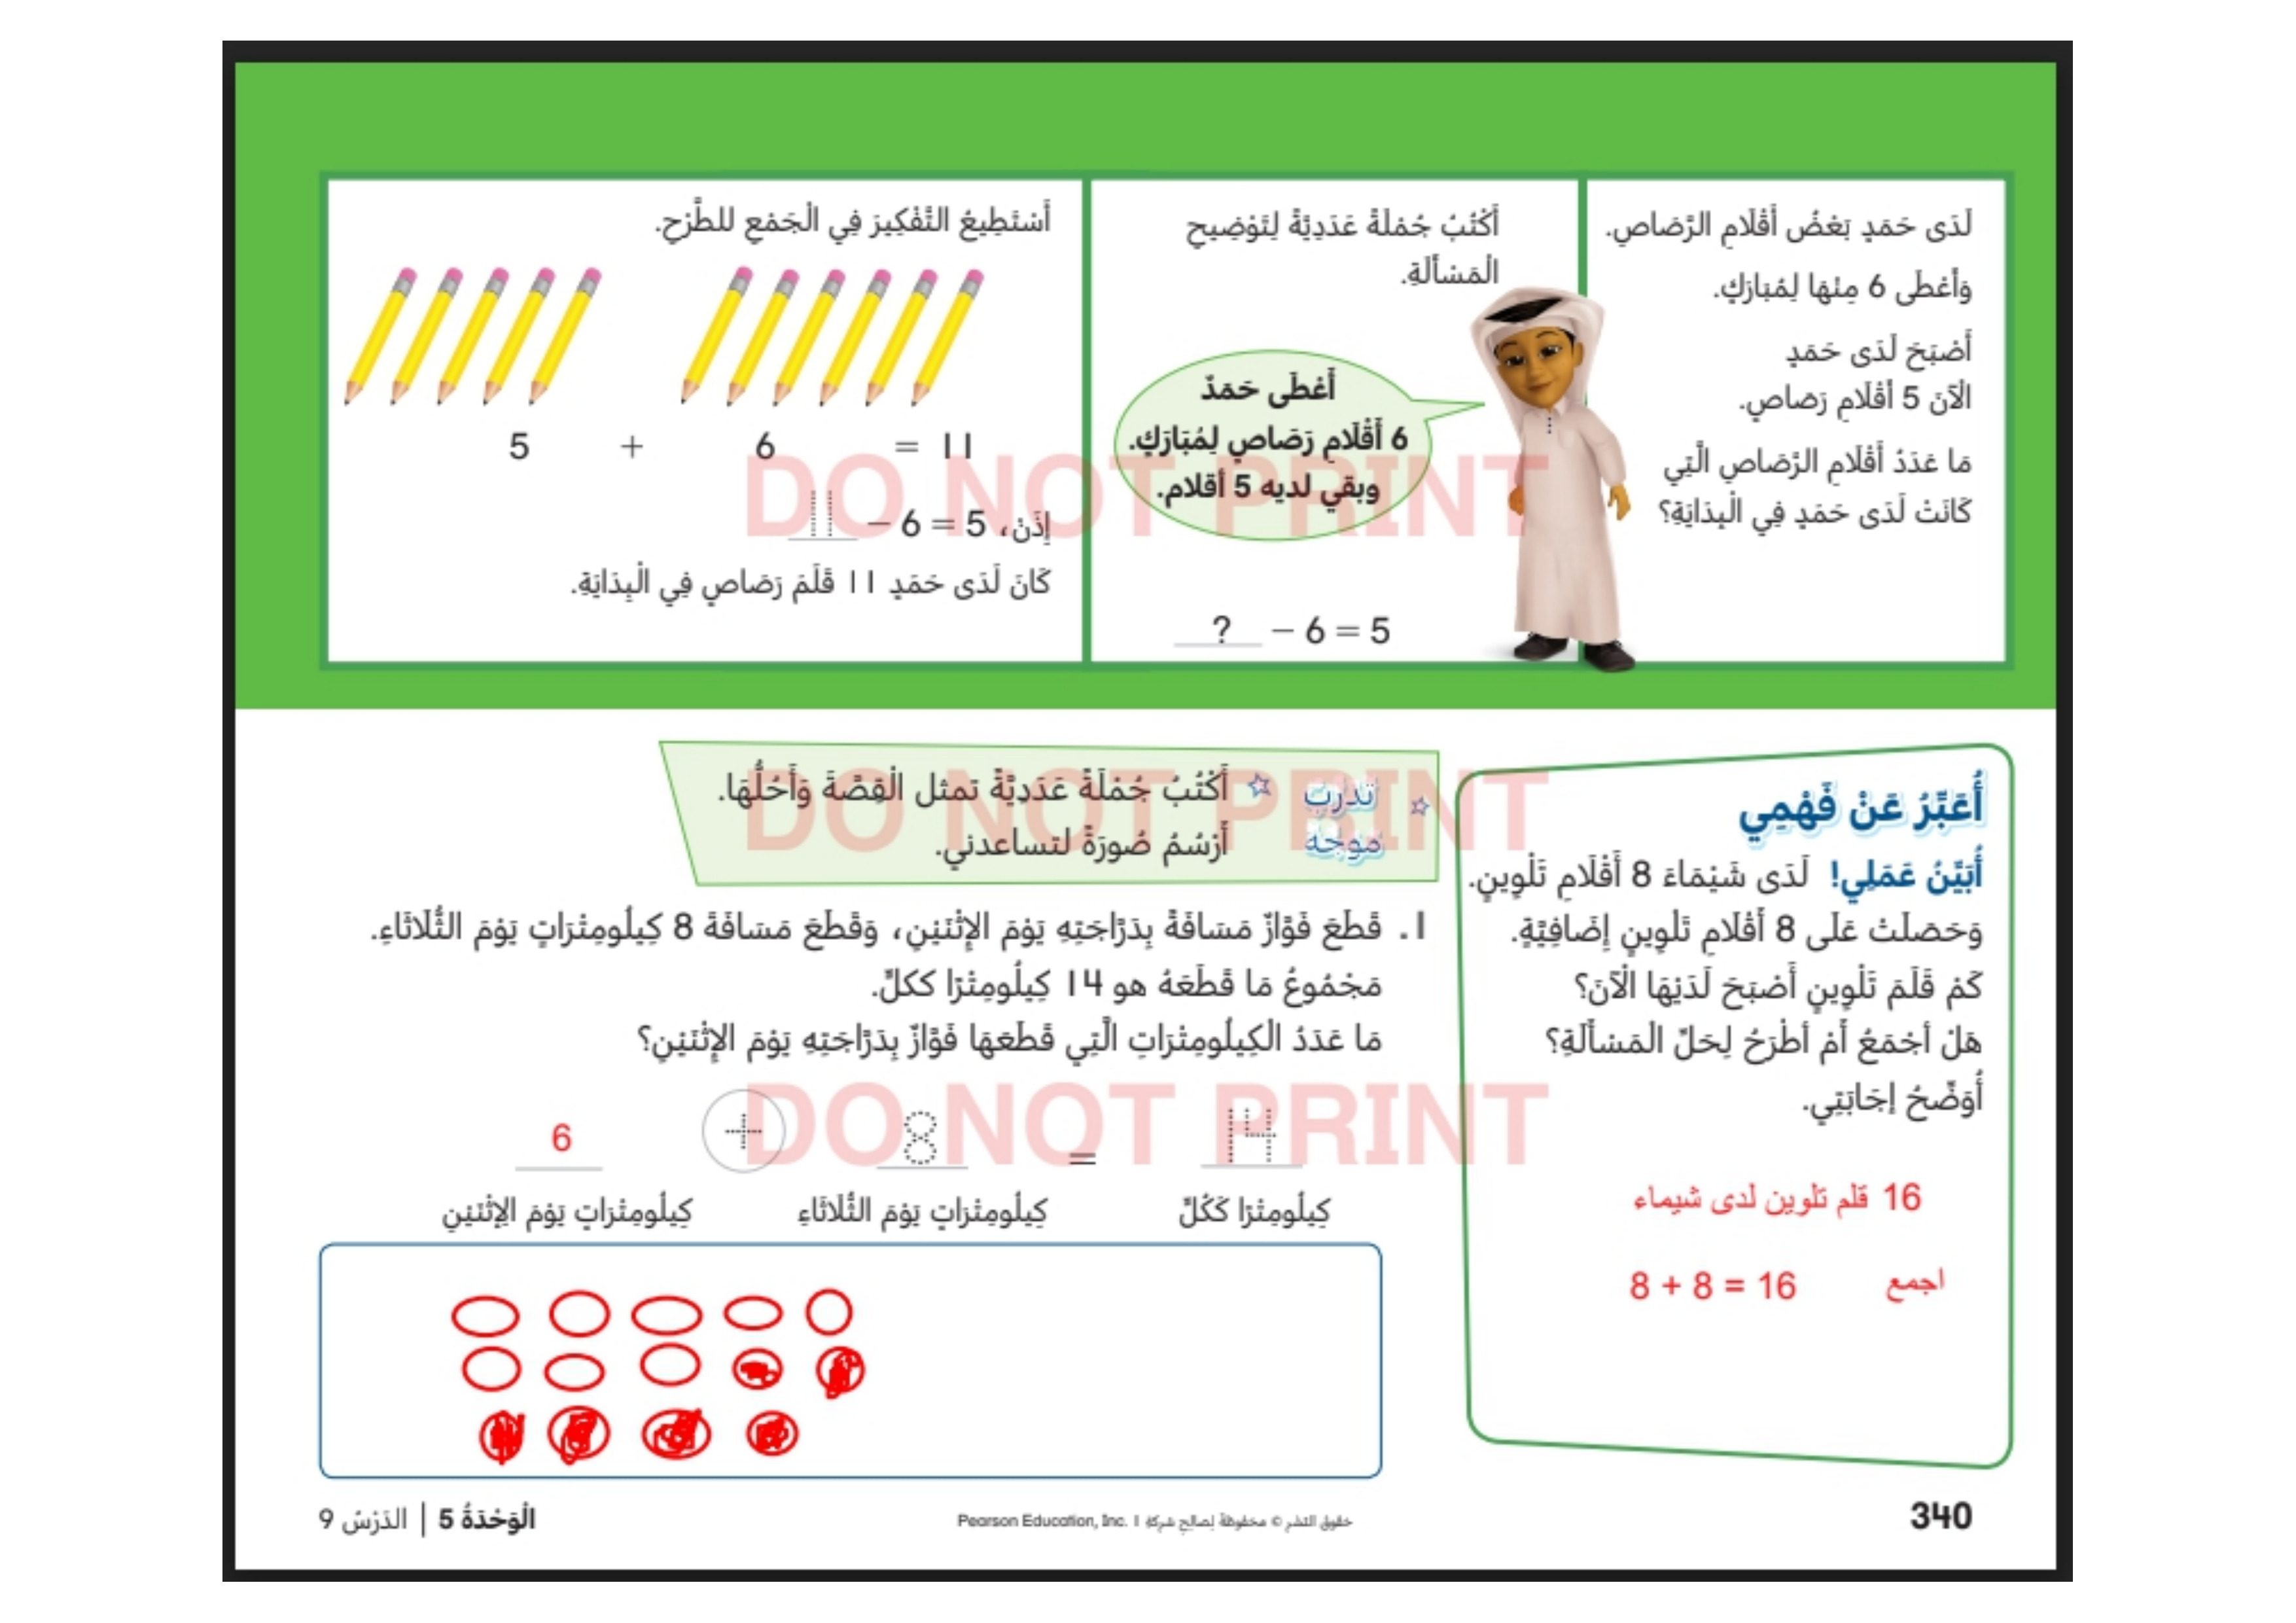 لَدَى حَمَدٍ بَعْضُ أَقْلَامِ الرَّصَاصِ.
وَأَعْطَى 6 مِنْهَا لِمُبَارَكٍ.
أَصْبَحَ لَدَى حَمَدٍ
الْآنَ 5 أَقْلَامِ رَصَاصٍ.
مَا عَدَدُ أَقْلَامِ الرَّصَاصِ الَّتِي
كَانَتْ لَدَى حَمَدٍ فِي الْبِدَايَةِ؟
أَكْتُبُ جُمْلَةً عَدَدِيَّةً لِتَوْضِيحِ
الْمَسْأَلَةِ.
أَعْطَى حَمَدٌ
6 أَقْلَامِ رَصَاصٍ لِمُبَارَكٍ.
وبقي لديه 5 أقلام.
? − 6 = 5
أَسْتَطِيعُ التَّفْكِيرَ فِي الْجَمْعِ للطَّرْحِ.
5 + 6 = 11
إِذَنْ، 11 − 6 = 5
كَانَ لَدَى حَمَدٍ 11 قَلَمَ رَصَاصٍ فِي الْبِدَايَةِ.
DO NOT PRINT
أُعَبِّرُ عَنْ فَهْمِي
أُبَيِّنُ عَمَلِي! لَدَى شَيْمَاءَ 8 أَقْلَامِ تَلْوِينٍ.
وَحَصَلَتْ عَلَى 8 أَقْلَامِ تَلْوِينٍ إِضَافِيَّةٍ.
كَمْ قَلَمَ تَلْوِينٍ أَصْبَحَ لَدَيْهَا الْآنَ؟
هَلْ أَجْمَعُ أَمْ أَطْرَحُ لِحَلِّ الْمَسْأَلَةِ؟
أُوَضِّحُ إِجَابَتِي.
16 قلم تلوين لدى شيماء
اجمع 8 + 8 = 16
تدرب موجه
أَكْتُبُ جُمْلَةً عَدَدِيَّةً تمثل الْقِصَّةَ وَأَحُلُّهَا.
أَرْسُمُ صُورَةً لتساعدني.
DO NOT PRINT
1. قَطَعَ فَوَّازٌ مَسَافَةً بِدَرَّاجَتِهِ يَوْمَ الإِثْنَيْنِ، وَقَطَعَ مَسَافَةَ 8 كِيلُومِتْرَاتٍ يَوْمَ الثُّلَاثَاءِ.
مَجْمُوعُ مَا قَطَعَهُ هو 14 كِيلُومِتْرًا ككلٍّ.
مَا عَدَدُ الْكِيلُومِتْرَاتِ الَّتِي قَطَعَهَا فَوَّازٌ بِدَرَّاجَتِهِ يَوْمَ الإِثْنَيْنِ؟
DO NOT PRINT
6 + 8 = 14
كِيلُومِتْرَاتٍ يَوْمَ الإِثْنَيْنِ كِيلُومِتْرَاتٍ يَوْمَ الثُّلَاثَاءِ كِيلُومِتْرًا كَكُلٍّ
340
حقوق النشر © محفوظة لصالح شركة Pearson Education, Inc. 1
الْوَحْدَةُ 5 | الدَّرْسُ 9